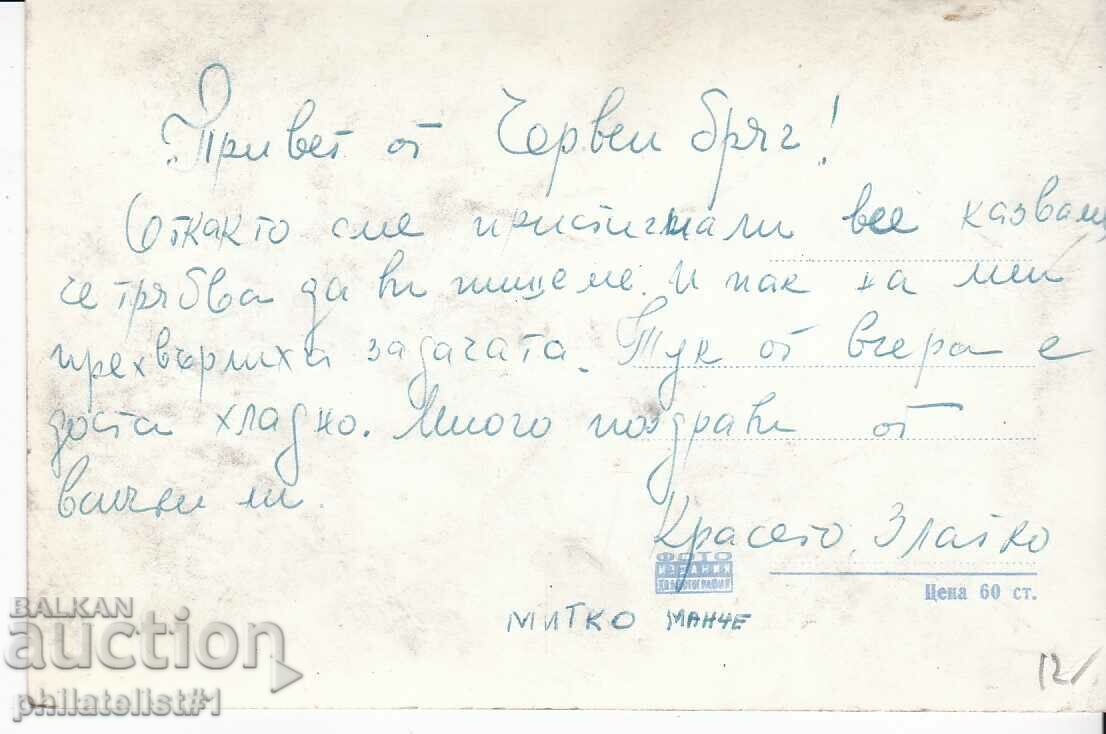 Привет от Червен бряг!
Откакто сме пристигнали все казваме,
че трябва да ви пишеме. И пак на мен
прехвърлиха задачата. Тук от вчера е
доста хладно. Много поздрави от
всички ни.
Красето, Златко
ФОТО
ИЗДАНИЯ
Цена 60 ст.
МИТКО МАНЧЕ
12/
BALKAN
auction
philatelist#1